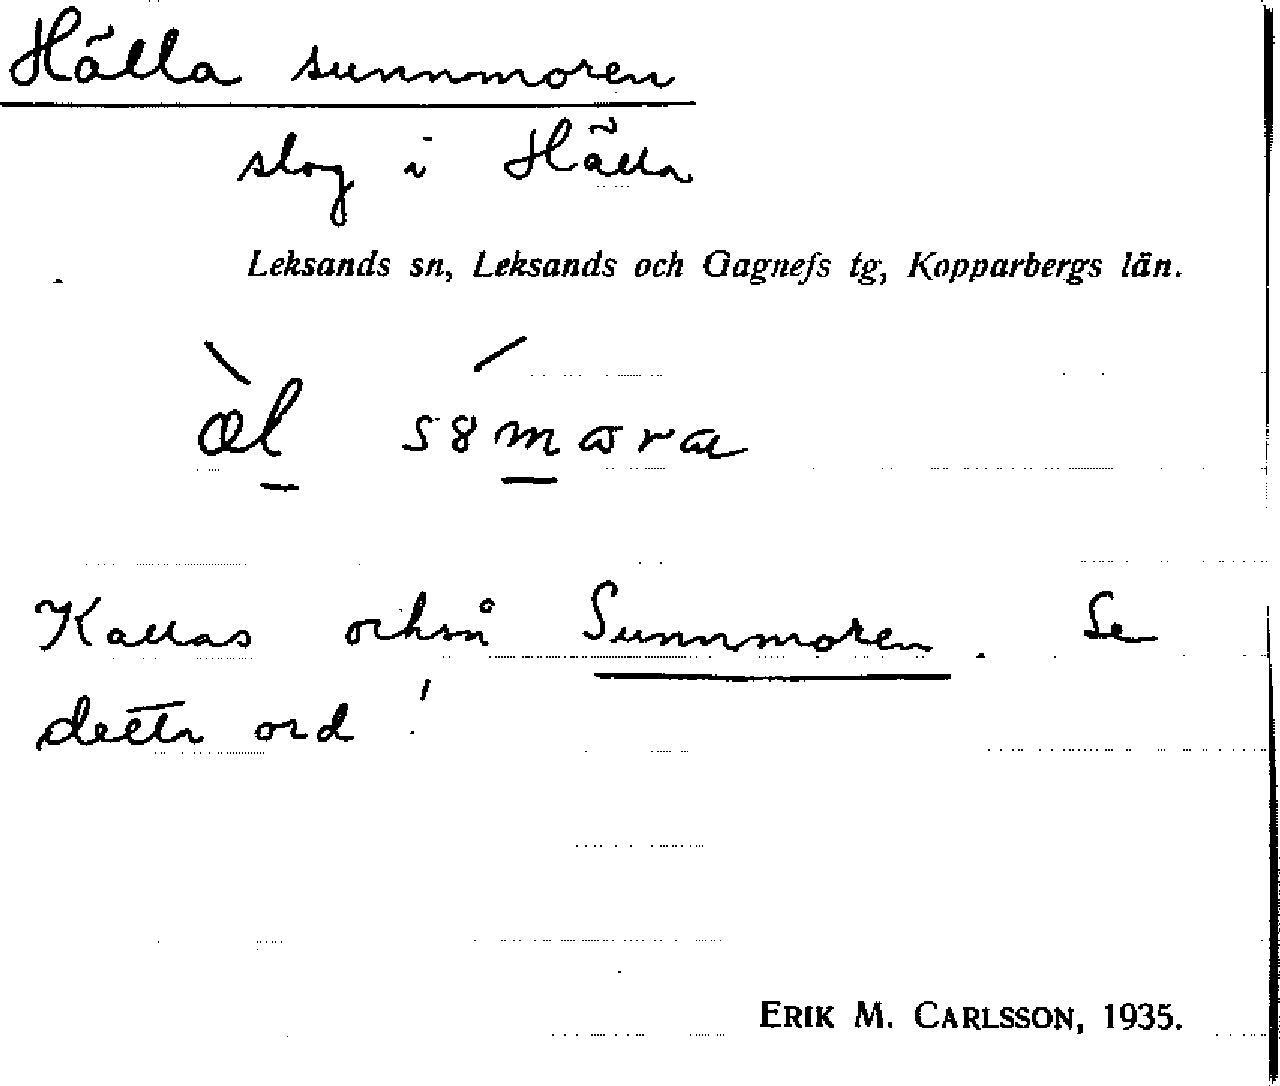 Hälla sunnmoren
slog i Hälla
Leksands sn, Leksands och Gagnefs tg, Kopparbergs län.
Kallas också Sunnmoren. Se
detta ord!
ERIK M. CARLSSON, 1935.